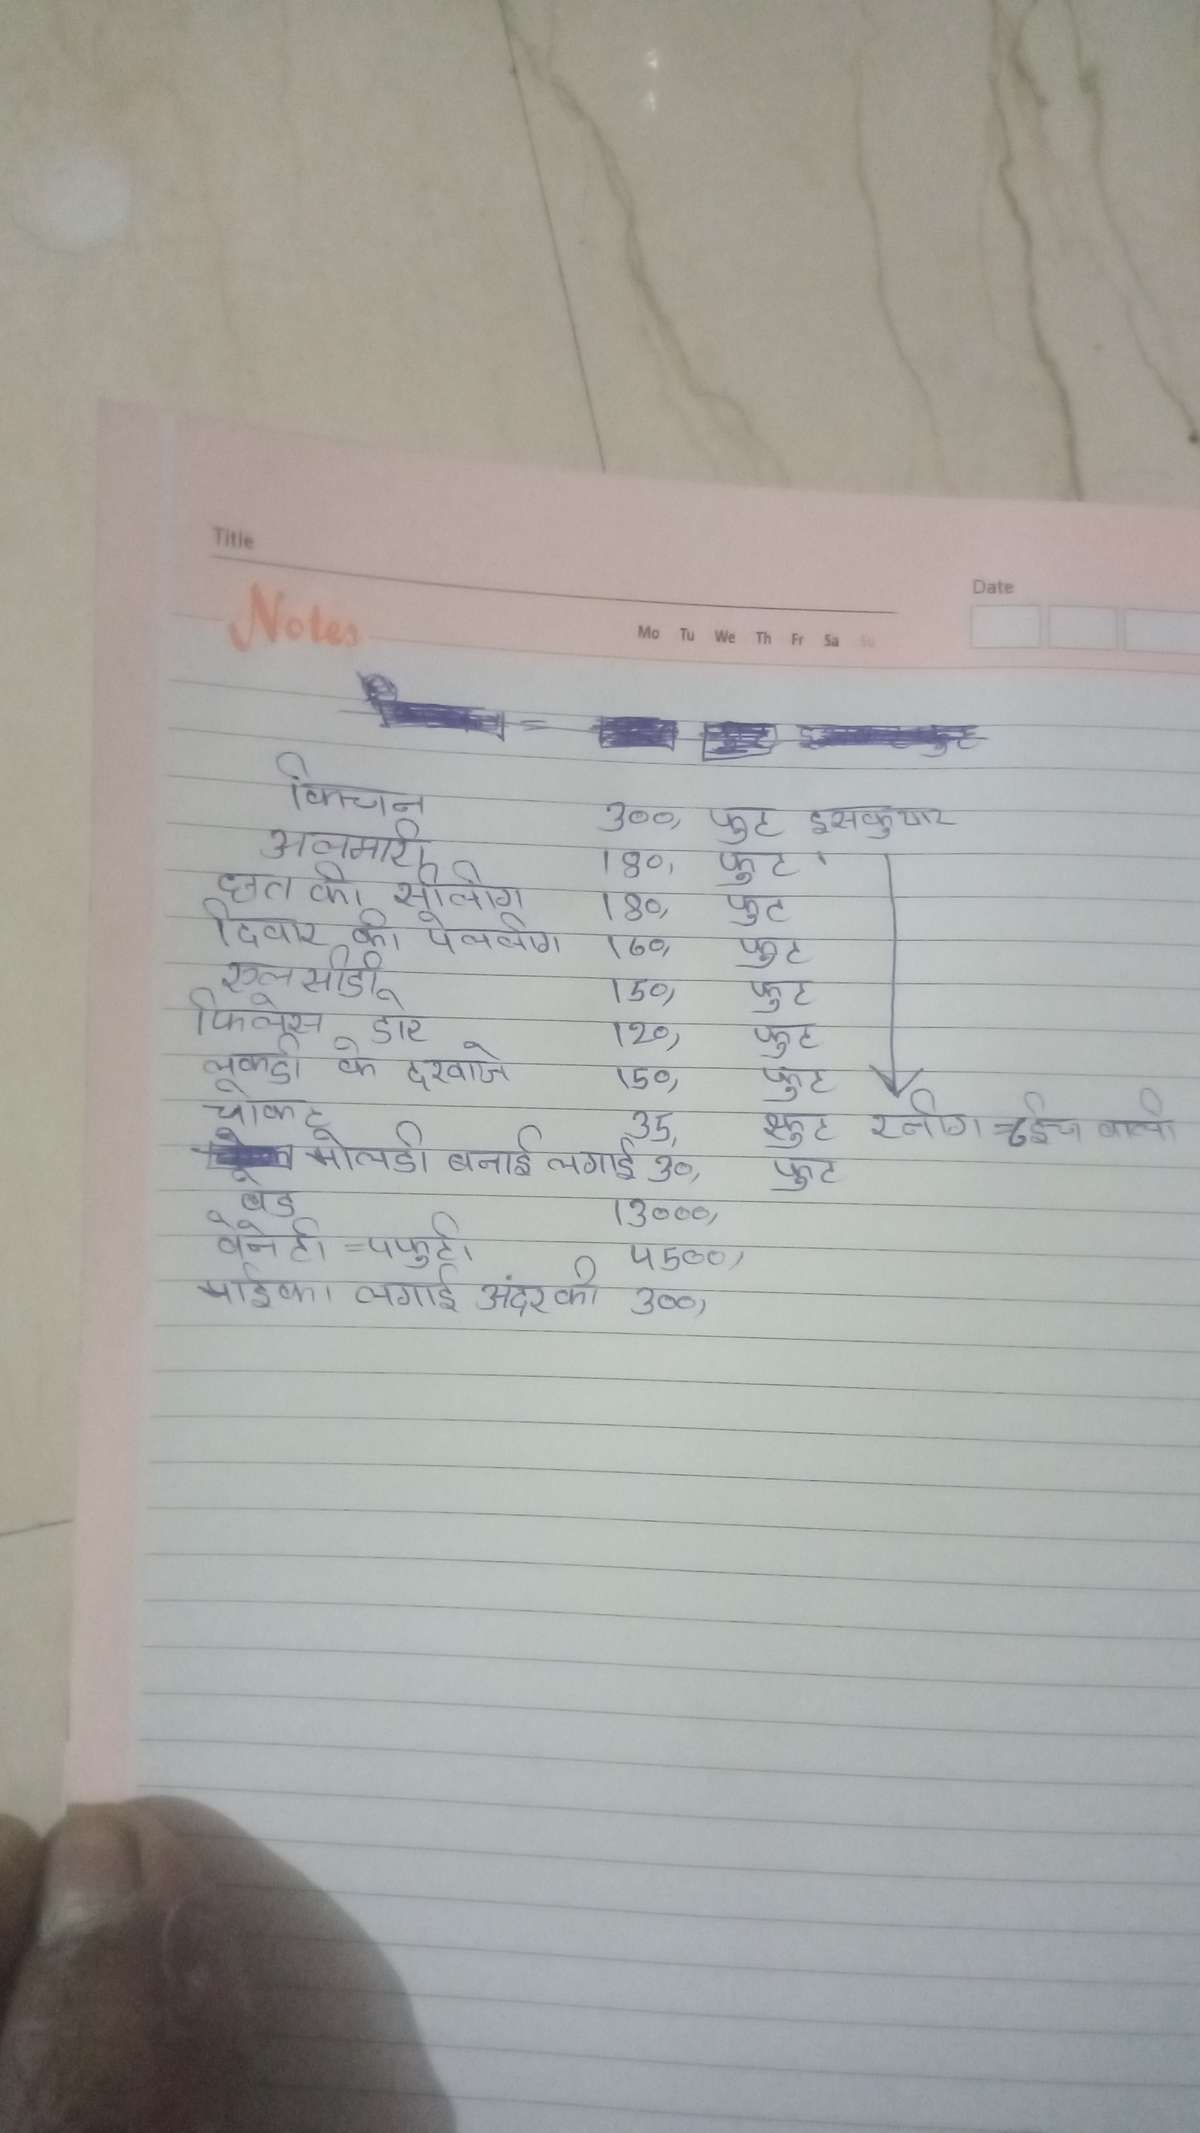 Title
Date
Notes
Mo Tu We Th Fr Sa Su
किचन 300, फुट इसकुयार
अलमारी 180, फुट
छत की सीलीग 180, फुट
दिवार की पेनलीग 160, फुट
एलसीडी 150, फुट
फिलेस डोर 120, फुट
लकडी के दरवाजे 150, फुट
चोकट 35, फुट रनीग ईच वाली
मोलडी बनाई लगाई 30, फुट
बेड 13000,
वेनेटी = ५फुटी ५500,
माईका लगाई अंदर की 300,